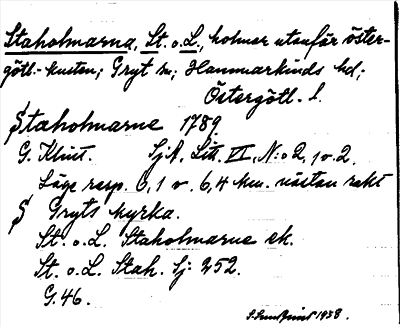 Staholmarna, St. o. L., holmar utanför öster-
götl.-kusten; Gryt sn; Hammarkinds hd;
Östergötl. l.
Staholmarne 1789.
G. Klint. SjA. Litt. VI, N:o 2, 1 o. 2.
Läge resp. 6,1 o. 6,4 km. nästan rakt
S Gryts kyrka.
St. o. L. Staholmarne ek.
St. o. L. Stah. Sj: 252.
G. 46.
1938.